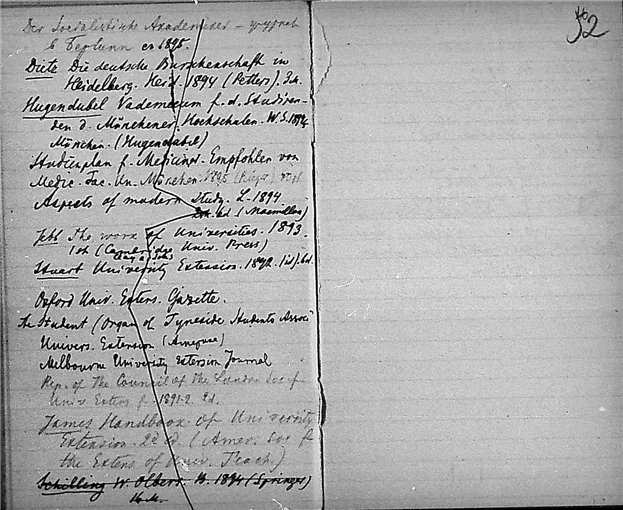 52
Der Socialistische Akademiker –
в Берлинѣ съ 1895.
Dietz Die deutsche Burschenschaft in
Heidelberg. Heid. 1894 (Petters).
Hugendubel Vademecum f. d. Studiren-
den d. Münchener Hochschulen. W.S. 1894
München. (Hugendubel)
Studienplan f. Mediciner. Empfohlen von
Medic. Fac. Un. München. 1895 (Rieger)
Aspects of modern Study. L. 1894.
2sh. 6d. (Macmillan)
Jebb The work of Universities. 1893.
1sh (Cambridge Univ. Press)
Stuart University Extension. 1892. 6d.
Oxford Univ. Extens. Gazette.
The Student (Organ of Tyneside Students Assoc
Univers. Extension (Америка)
Melbourne University Extension Journal
Rep. of the Council of the London Soc of
Univ Extens f. 1891-2. 2d.
James Handbook of University
Extension. 2d ed. (Amer. Soc f
the Extens of Univ. Teach.)
Schilling W. Olbers. B. 1894 (Springer)
16 M.